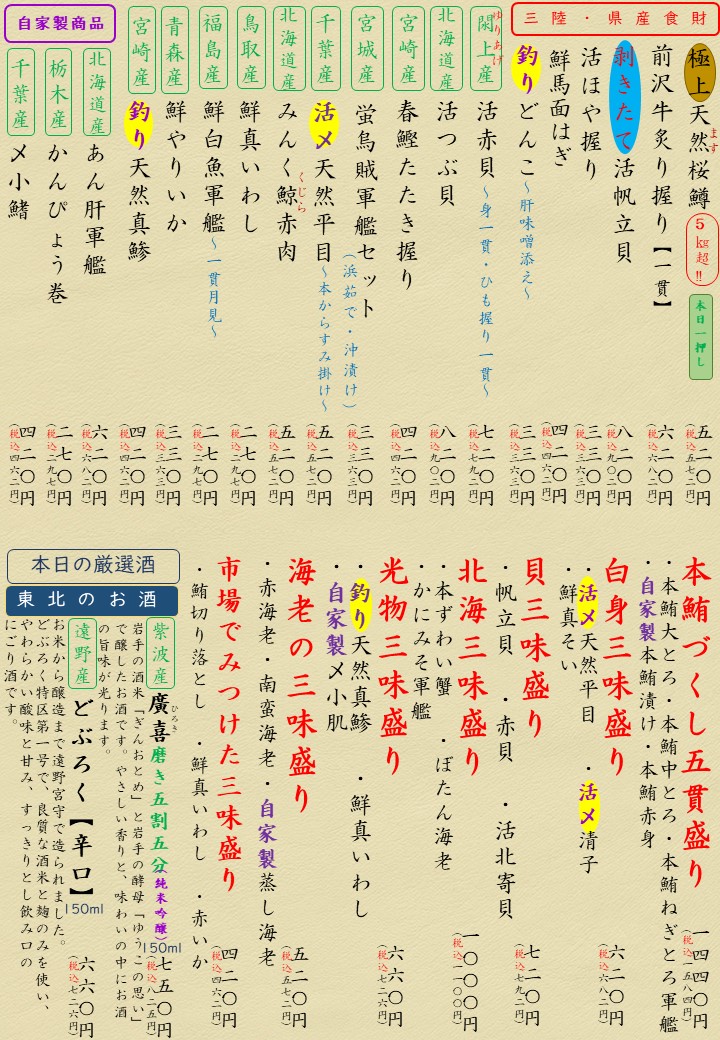 三陸・県産食財
極上天然桜鱒 ます 5㎏超‼ 本日一押し 五二〇円 (税込五七二円)
前沢牛炙り握り【一貫】 六二〇円 (税込六八二円)
剥きたて活帆立貝 八二〇円 (税込九〇二円)
活ほや握り 三三〇円 (税込三六三円)
鮮馬面はぎ 四二〇円 (税込四六二円)
釣りどんこ～肝味噌添え～ 三三〇円 (税込三六三円)
閖上産 ゆりあげ 活赤貝～身一貫・ひも握り一貫～ 七二〇円 (税込七九二円)
北海道産 活つぶ貝 八二〇円 (税込九〇二円)
宮崎産 春鰹たたき握り 四二〇円 (税込四六二円)
宮城産 蛍烏賊軍艦セット (浜茹で・沖漬け) 三三〇円 (税込三六三円)
千葉産 活〆天然平目～本からすみ掛け～ 五二〇円 (税込五七二円)
北海道産 みんく鯨赤肉 くじら 五二〇円 (税込五七二円)
鳥取産 鮮真いわし 二七〇円 (税込二九七円)
福島産 鮮白魚軍艦～一貫月見～ 二七〇円 (税込二九七円)
青森産 鮮やりいか 三三〇円 (税込三六三円)
宮崎産 釣り天然真鯵 四二〇円 (税込四六二円)
自家製商品
北海道産 あん肝軍艦 六二〇円 (税込六八二円)
栃木産 かんぴょう巻 二七〇円 (税込二九七円)
千葉産 〆小鰭 四二〇円 (税込四六二円)
本鮪づくし五貫盛り 一四四〇円 (税込一五八四円)
・本鮪大とろ・本鮪中とろ・本鮪ねぎとろ軍艦
・自家製本鮪漬け・本鮪赤身
白身三味盛り 六二〇円 (税込六八二円)
・活〆天然平目 ・活〆清子
・鮮真そい
貝三味盛り 七二〇円 (税込七九二円)
・帆立貝 ・赤貝 ・活北寄貝
北海三味盛り 一〇〇〇円 (税込一一〇〇円)
・本ずわい蟹 ・ぼたん海老
・かにみそ軍艦
光物三味盛り 六六〇円 (税込七二六円)
・釣り天然真鯵 ・鮮真いわし
・自家製〆小肌
海老の三味盛り 五二〇円 (税込五七二円)
・赤海老・南蛮海老・自家製蒸し海老
市場でみつけた三味盛り 四二〇円 (税込四六二円)
・鮪切り落とし ・鮮真いわし ・赤いか
本日の厳選酒
東北のお酒
紫波産 廣喜 ひろき 磨き五割五分(純米吟醸) 150ml 七五〇円 (税込八二五円)
岩手の酒米「ぎんおとめ」と岩手の酵母「ゆうこの思い」
で醸したお酒です。やさしい香りと、味わいの中にお酒
の旨味が光ります。
遠野産 どぶろく【辛口】 150ml 六六〇円 (税込七二六円)
お米から醸造まで遠野宮守で造られました。
どぶろく特区第一号で、良質な酒米と麹のみを使い、
やわらかい酸味と甘み、すっきりとし飲み口の
にごり酒です。